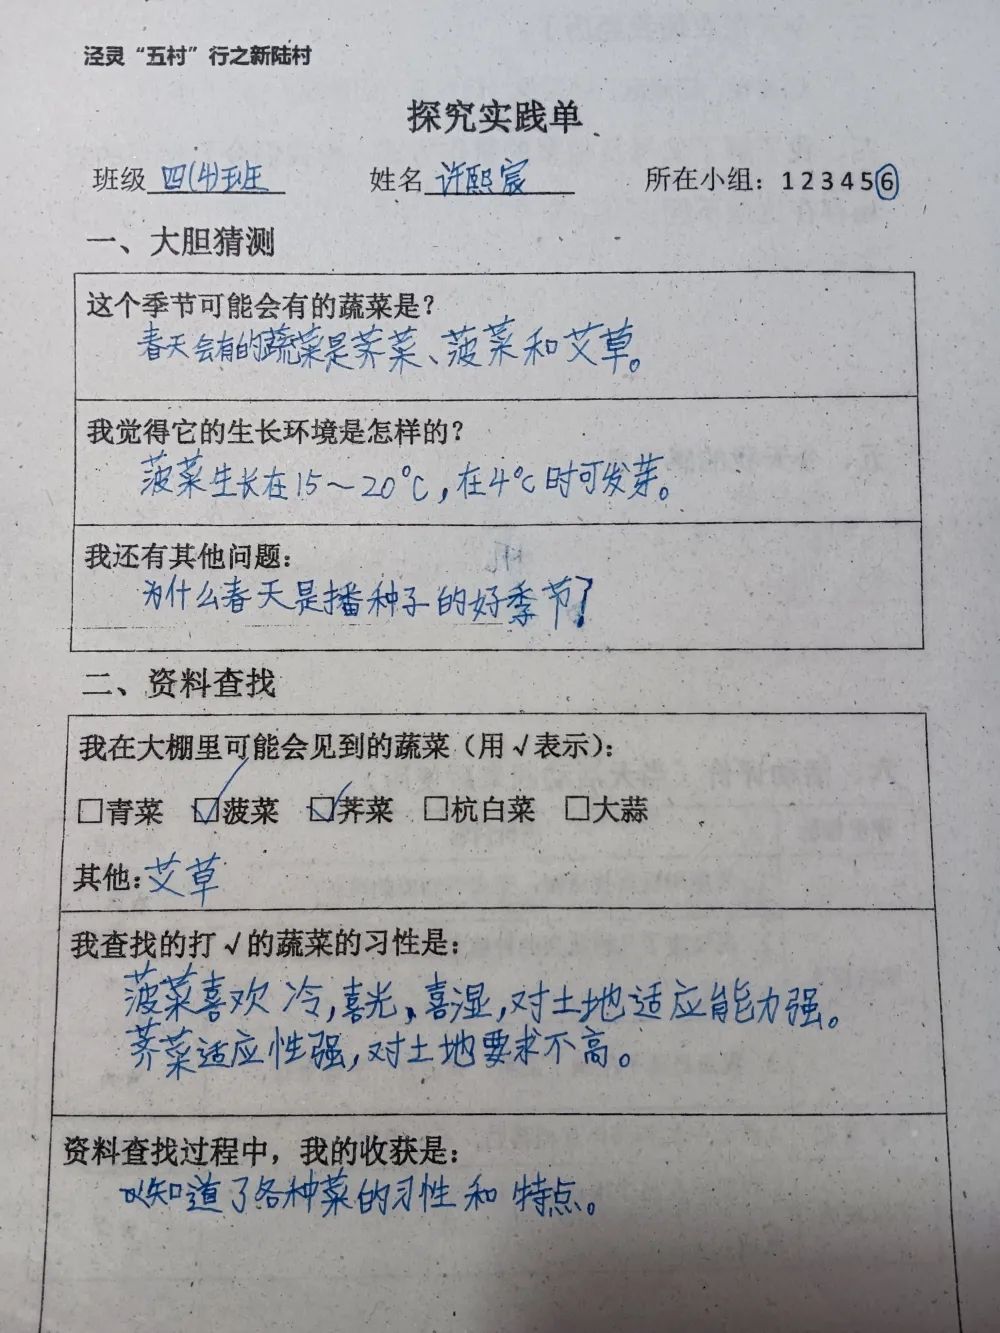 泾灵“五村”行之新陆村
探究实践单
班级 四(4)班 姓名 许熙宸 所在小组：1 2 3 4 5 6
一、大胆猜测
这个季节可能会有的蔬菜是？
春天会有的蔬菜是荠菜、菠菜和艾草。
我觉得它的生长环境是怎样的？
菠菜生长在15～20℃，在4℃时可发芽。
我还有其他问题：
为什么春天是播种子的好季节？
二、资料查找
我在大棚里可能会见到的蔬菜（用√表示）：
□青菜 ☑菠菜 ☑荠菜 □杭白菜 □大蒜
其他：艾草
我查找的打√的蔬菜的习性是：
菠菜喜欢冷，喜光，喜湿，对土地适应能力强。
荠菜适应性强，对土地要求不高。
资料查找过程中，我的收获是：
知道了各种菜的习性和特点。